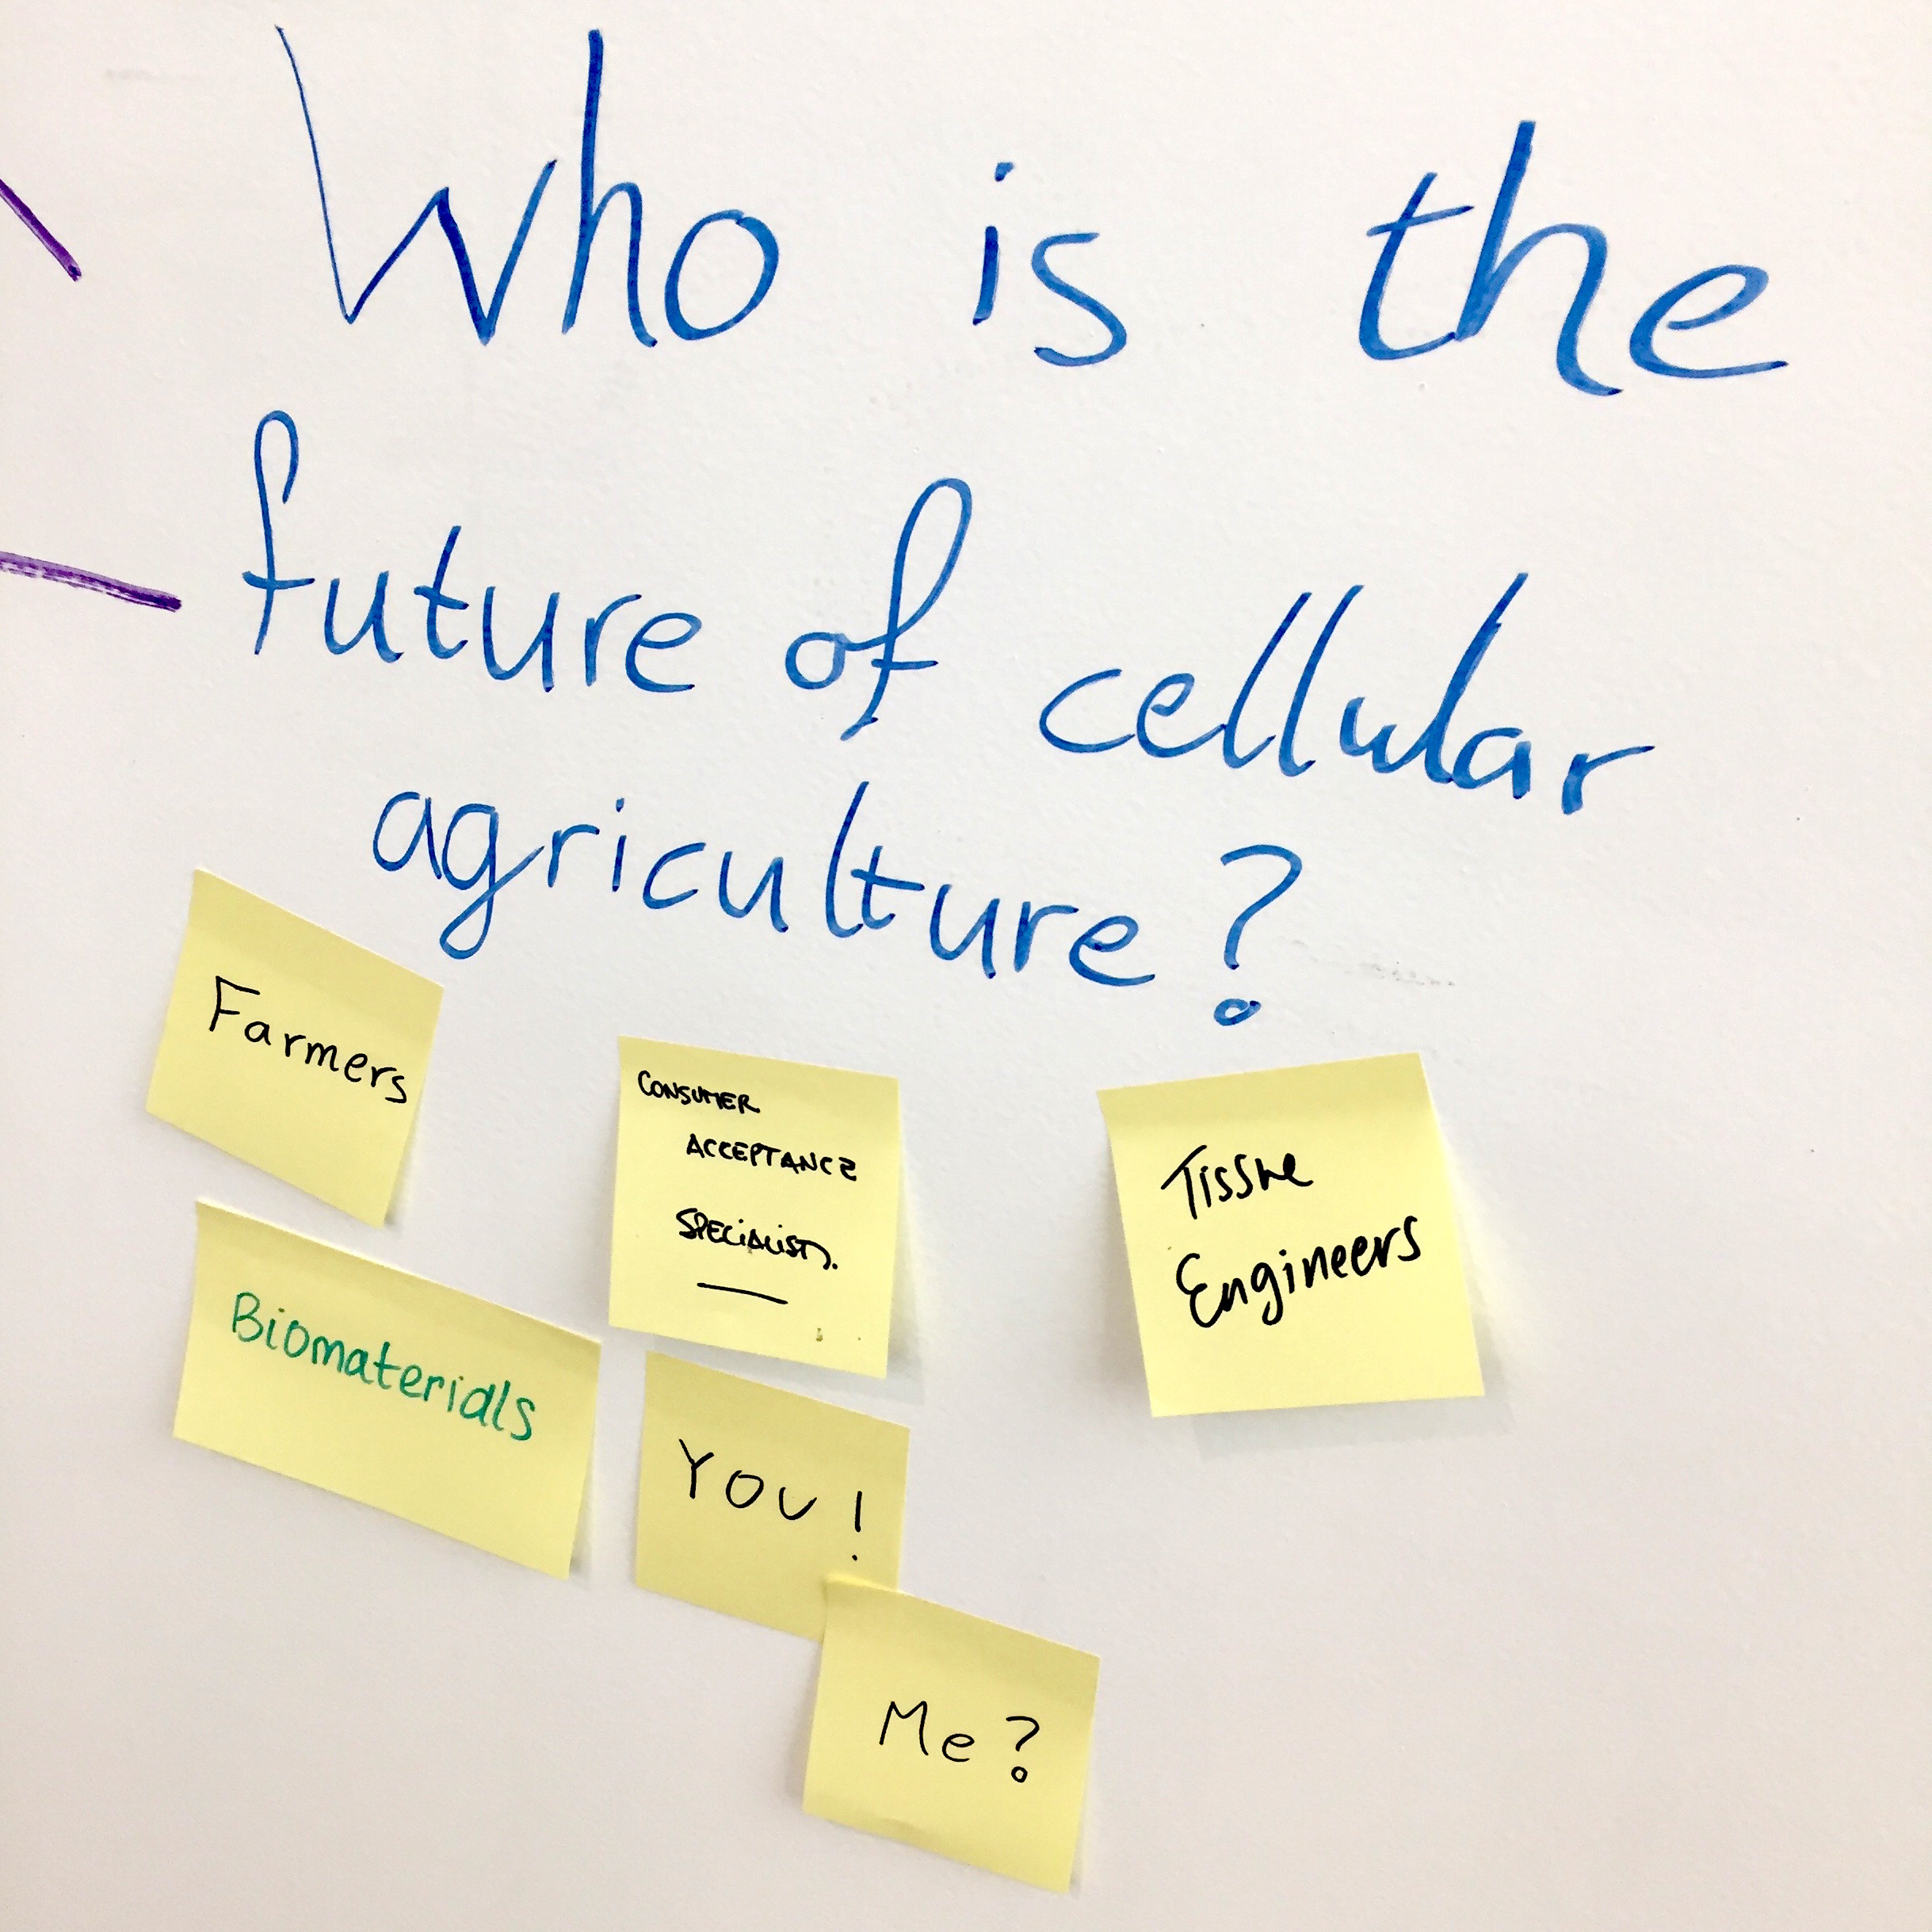 Who is the
future of cellular
agriculture?
Farmers
CONSUMER
ACCEPTANCE
SPECIALISTS.
Tissue
Engineers
Biomaterials
You!
Me?